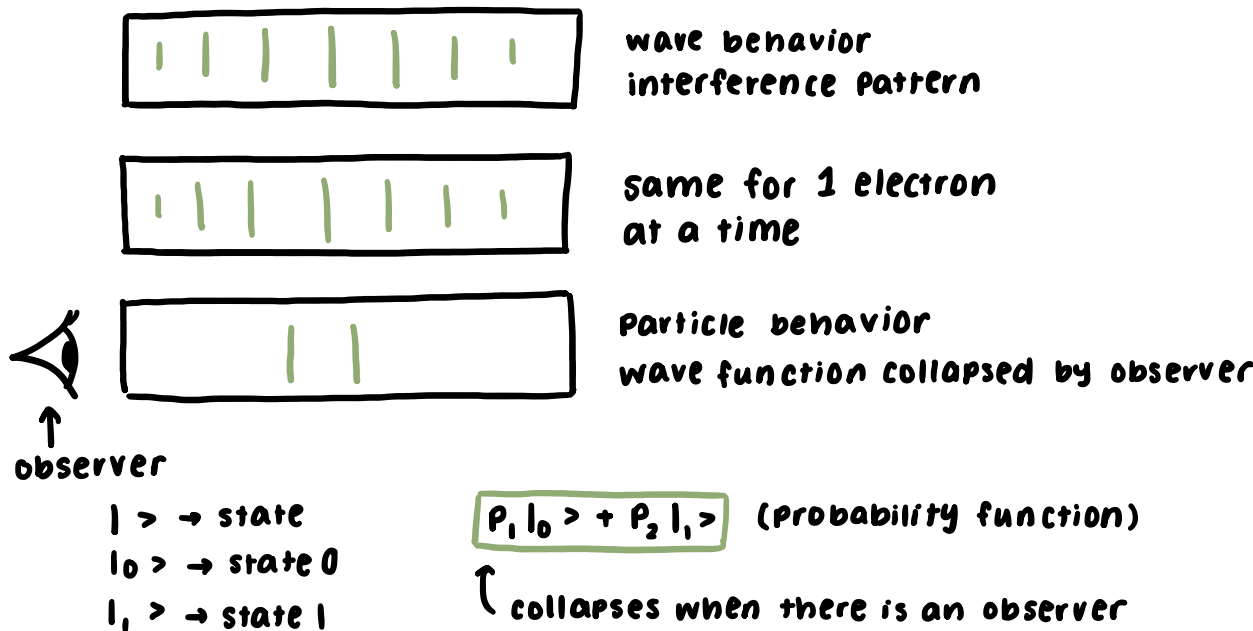 wave behavior
interference pattern
same for 1 electron
at a time
particle behavior
wave function collapsed by observer
observer
| > → state
|₀ > → state 0
|₁ > → state 1
P₁ |₀ > + P₂ |₁ > (probability function)
collapses when there is an observer